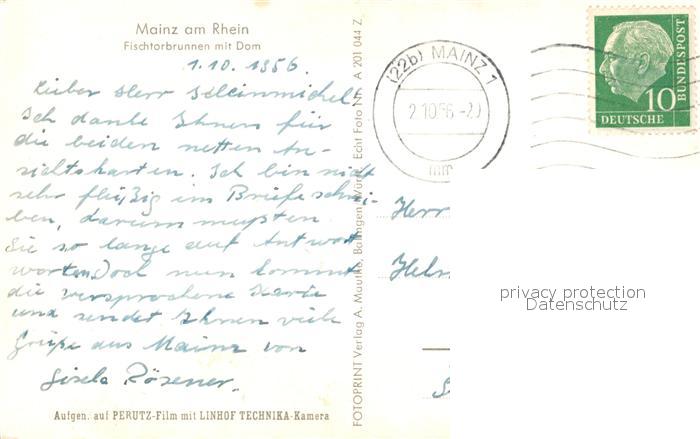 Mainz am Rhein
Fischtorbrunnen mit Dom
1.10.1956.
Lieber Herr
Ich danke Ihnen für
die beiden netten An-
sichtskarten. Ich bin nicht
sehr fleißig im Briefe schrei-
ben, darum mußten
Sie so lange auf Antwort
warten. Doch nun kommt
die versprochene Karte
und sendet Ihnen viele
Grüße aus Mainz von
Gisela Rösener.
Aufgen. auf PERUTZ-Film mit LINHOF TECHNIKA-Kamera
FOTOPRINT Verlag A. Mauthe, Balingen/Württ. Echt Foto Nr. A 201 044 Z
(22b) MAINZ 1
2.10.56.-20
mm
10
DEUTSCHE
BUNDESPOST
Herr
Heln
privacy protection
Datenschutz